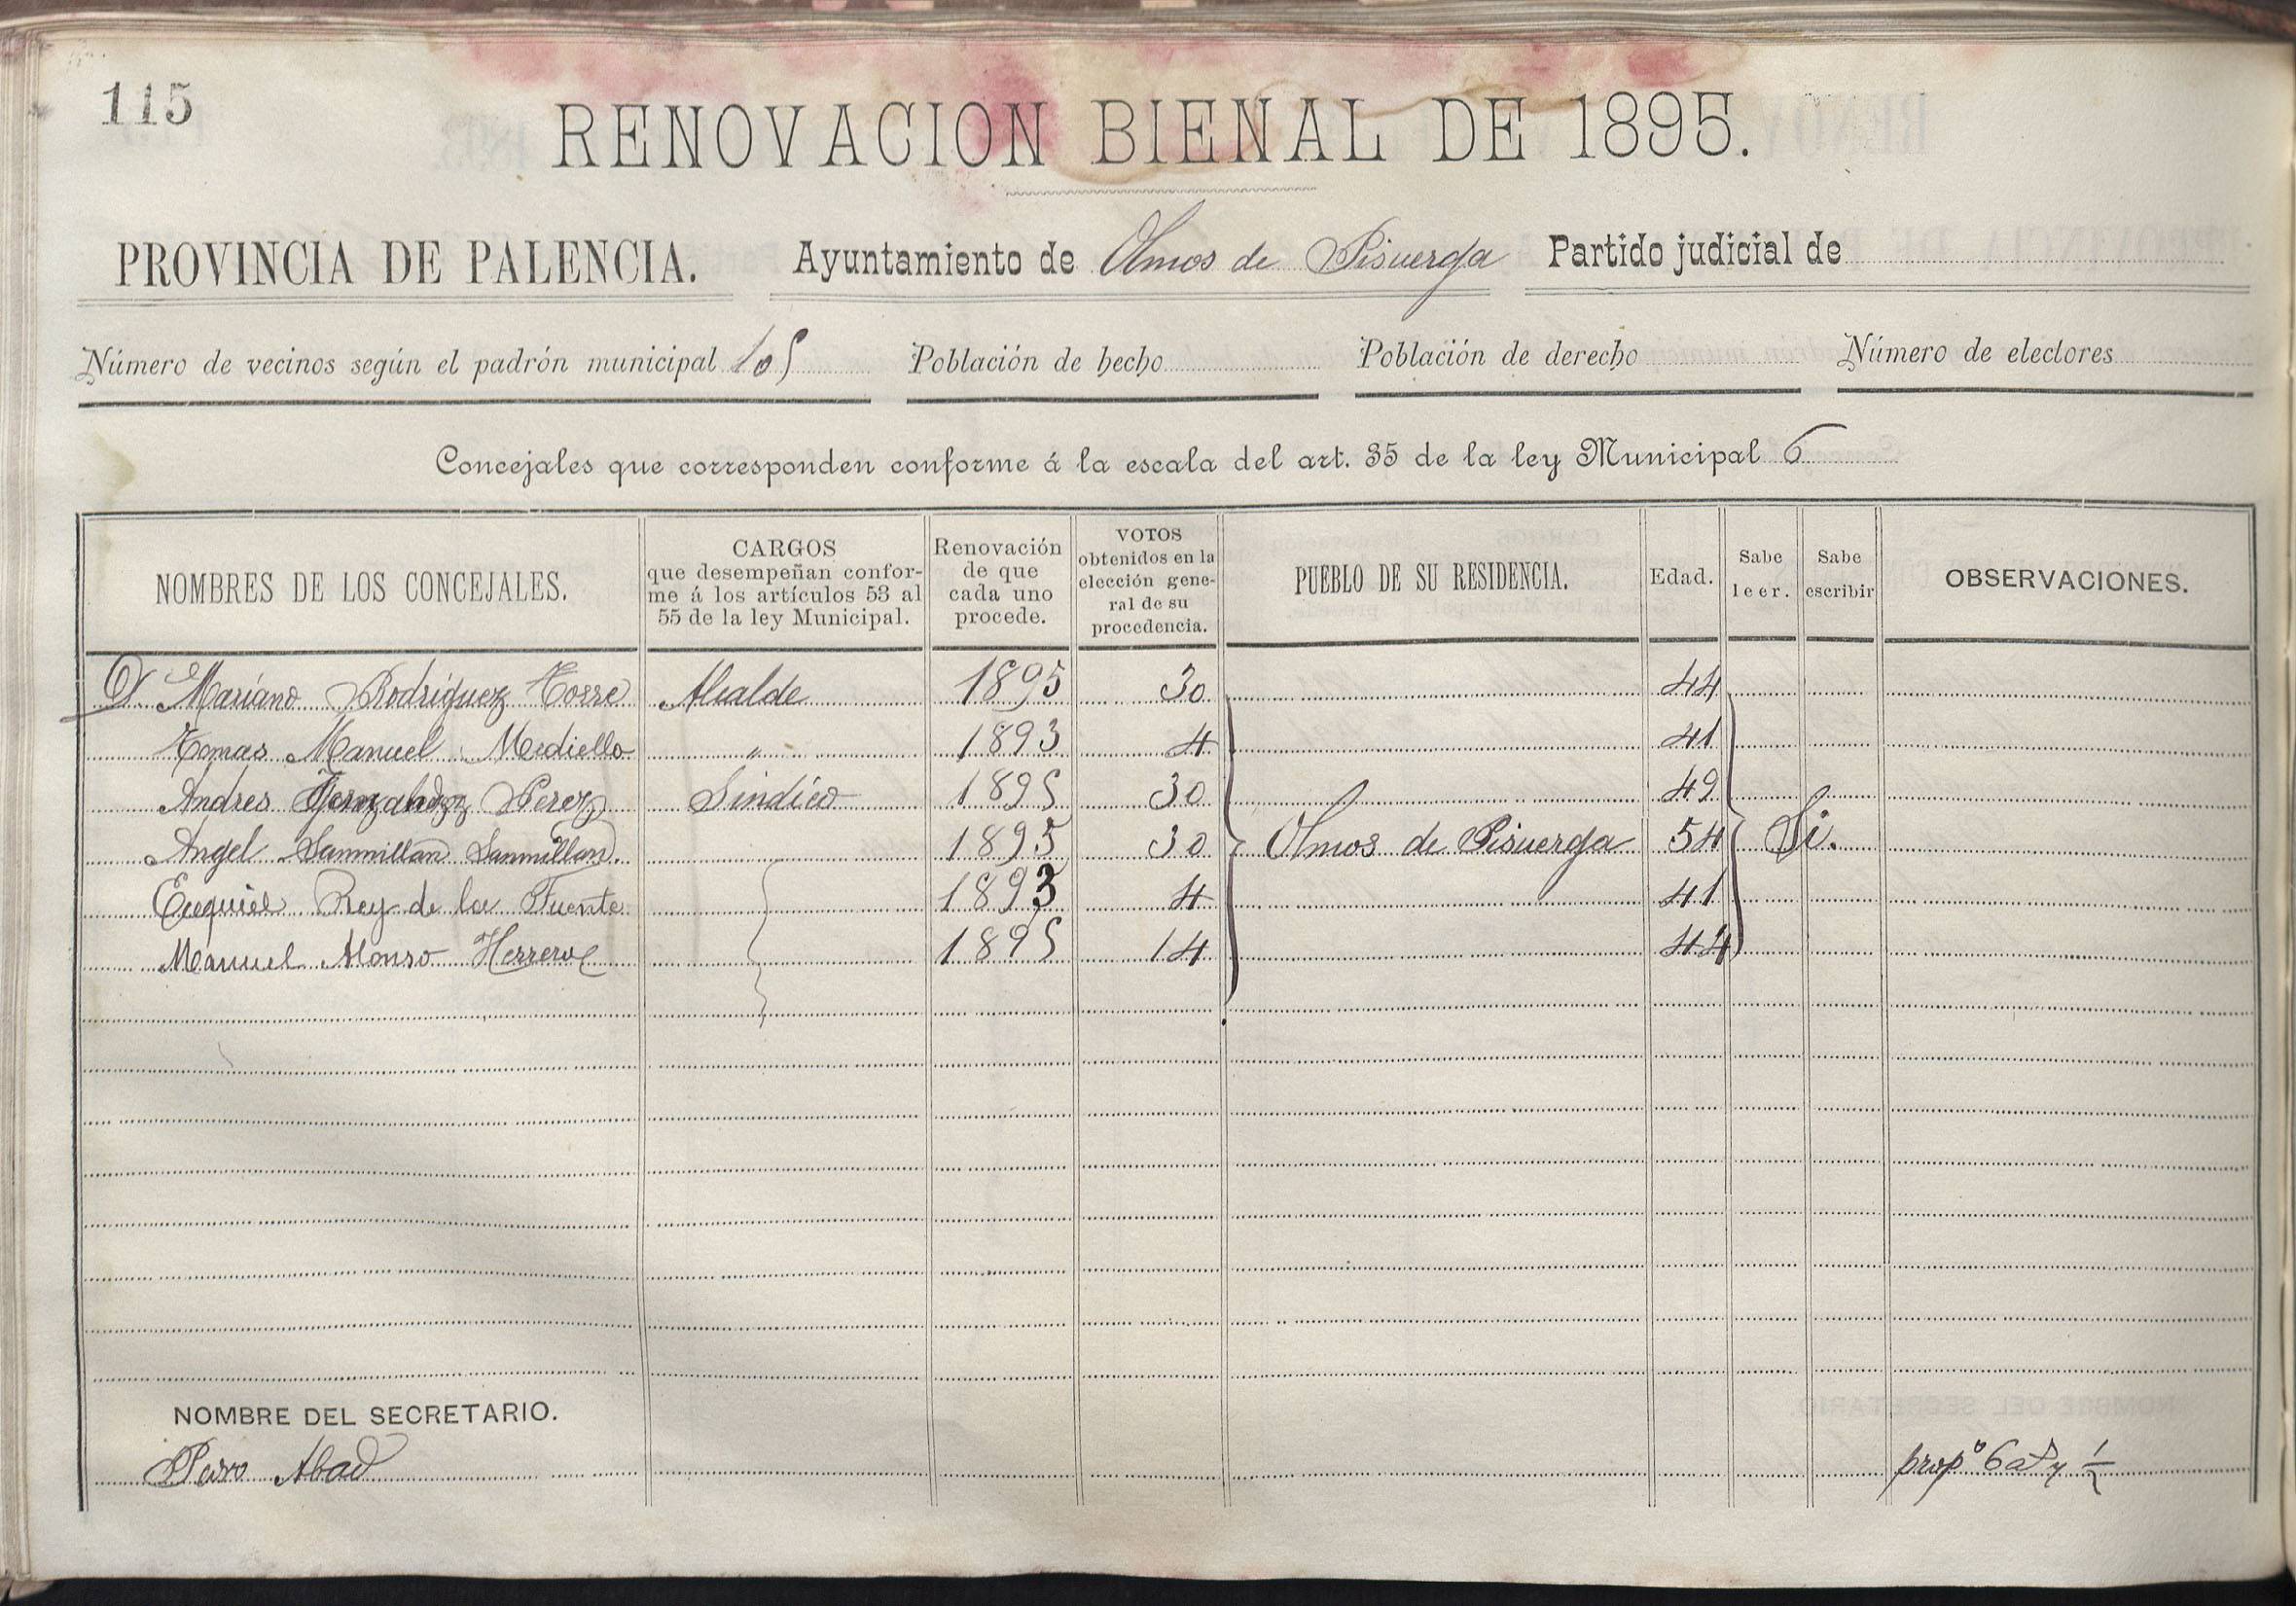 115
RENOVACION BIENAL DE 1895.
PROVINCIA DE PALENCIA. Ayuntamiento de Olmos de Pisuerga Partido judicial de
Número de vecinos según el padrón municipal 105 Población de hecho Población de derecho Número de electores
Concejales que corresponden conforme á la escala del art. 35 de la ley Municipal 6
NOMBRES DE LOS CONCEJALES.
CARGOS
que desempeñan confor-
me á los artículos 53 al
55 de la ley Municipal.
Renovación
de que
cada uno
procede.
VOTOS
obtenidos en la
elección gene-
ral de su
procedencia.
PUEBLO DE SU RESIDENCIA.
Edad.
Sabe
leer.
Sabe
escribir
OBSERVACIONES.
D. Mariano Rodriguez Torre Alcalde 1895 30 44
Tomas Manuel Mediello " 1893 4 41
Andres Perez Sindico 1895 30 49
Angel Sanmillan Sanmillan 1895 30 Olmos de Pisuerga 54 Si.
Ezequiel Rey de la Fuente 1893 4 41
Manuel Alonso Herrero 1895 14 44
NOMBRE DEL SECRETARIO.
Pedro Abad propº 6 y 1/2